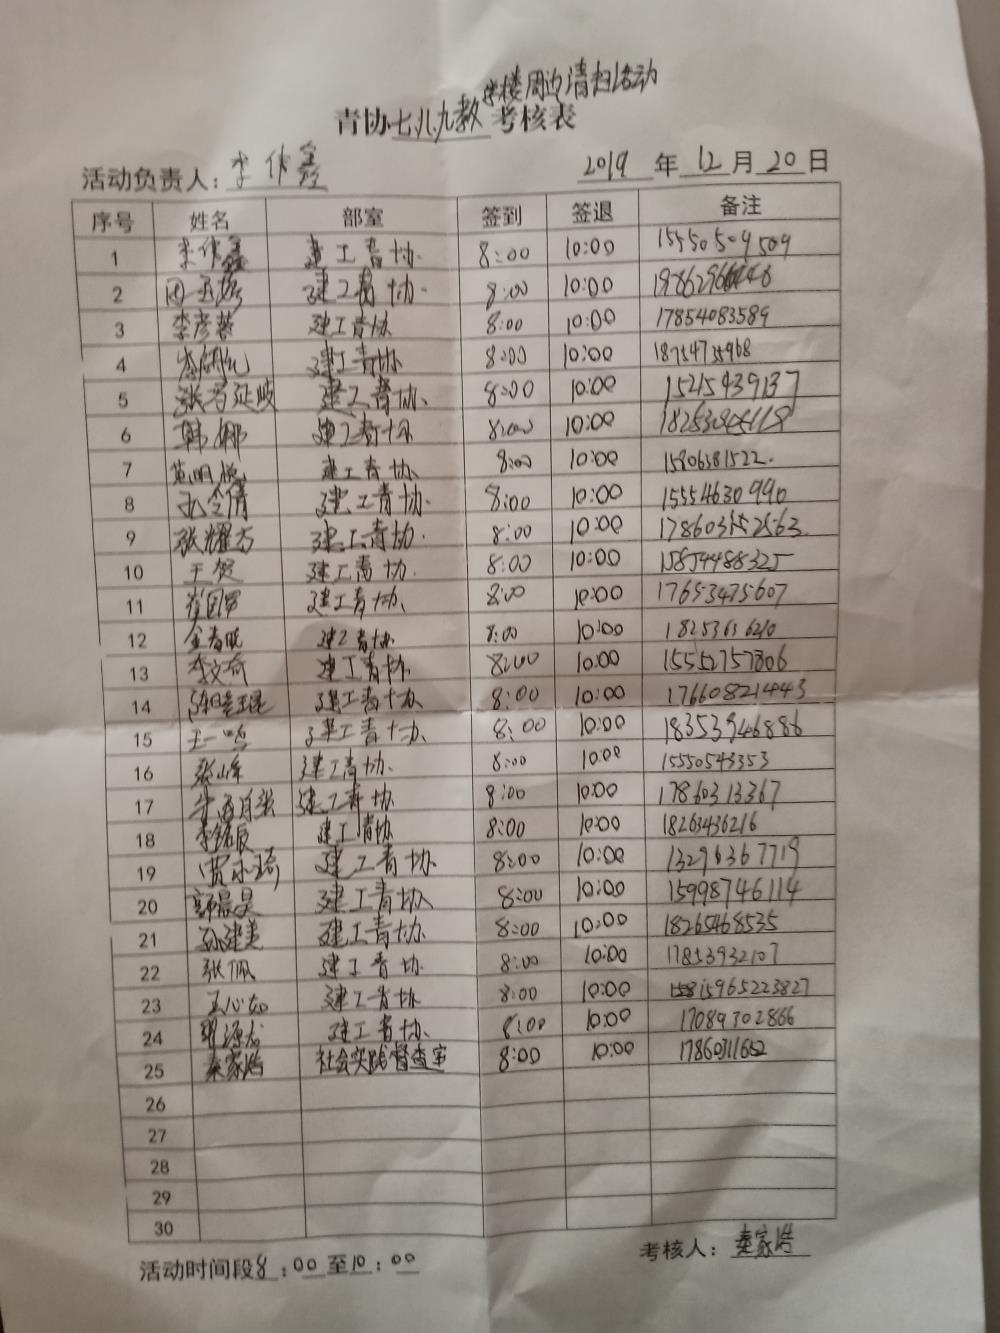 学楼周边清扫活动
青协七八九教考核表
活动负责人：李作鑫 2019年12月20日
序号 姓名 部室 签到 签退 备注
1 李作鑫 建工青协 8:00 10:00 15550509509
2 建工青协 8:00 10:00
3 李彦蓉 建工青协 8:00 10:00 17854083589
4 建工青协 8:00 10:00 18754735968
5 建工青协 8:00 10:00 15215439137
6 韩娜 建工青协 8:00 10:00
7 建工青协 8:00 10:00 15806381522
8 孔令倩 建工青协 8:00 10:00 15554630990
9 张耀杰 建工青协 8:00 10:00
10 王贺 建工青协 8:00 10:00 15854488325
11 建工青协 8:00 10:00 17653475607
12 建工青协 8:00 10:00 18253636210
13 李文奇 建工青协 8:00 10:00 15552757806
14 建工青协 8:00 10:00 176608214443
15 王一鸣 建工青协 8:00 10:00 18353946886
16 张峰 建工青协 8:00 10:00 15550543353
17 建工青协 8:00 10:00 17860313367
18 李铭辰 建工青协 8:00 10:00 18263436216
19 贾永琦 建工青协 8:00 10:00 13296367719
20 郭晨昊 建工青协 8:00 10:00 15998746114
21 孙建美 建工青协 8:00 10:00 18265468535
22 张佩 建工青协 8:00 10:00 17853932107
23 王心如 建工青协 8:00 10:00
24 建工青协 8:00 10:00 17089302866
25 秦家浩 社会实践督查室 8:00 10:00 17860311652
26
27
28
29
30
活动时间段8:00至10:00 考核人：秦家浩